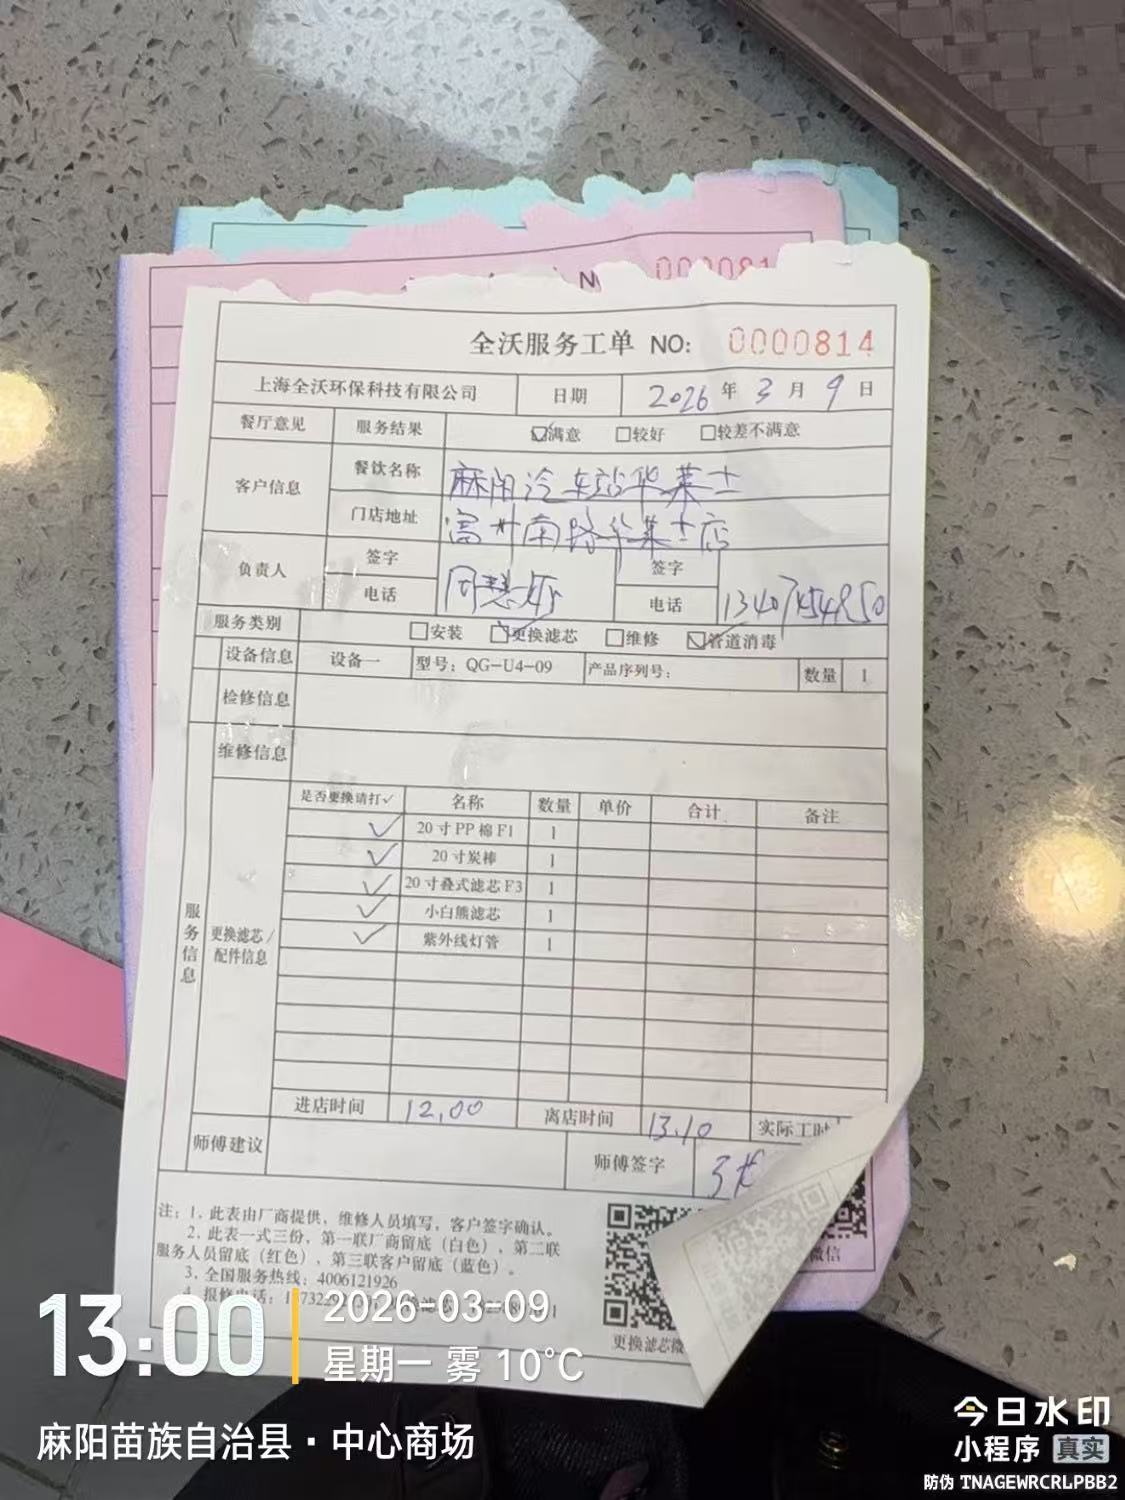 N
000081
全沃服务工单 NO: 0000814
上海全沃环保科技有限公司 日期 2026 年 3 月 9 日
餐厅意见 服务结果 ☑满意 □较好 □较差不满意
客户信息 餐饮名称 麻阳汽车站华莱士
门店地址 富州南路华莱士店
负责人 签字 签字
电话 周慧 电话
服务类别 □安装 ☑更换滤芯 □维修 ☑管道消毒
设备信息 设备一 型号：QG-U4-09 产品序列号： 数量 1
检修信息
维修信息
服务信息
更换滤芯/配件信息
是否更换请打✓ 名称 数量 单价 合计 备注
✓ 20寸PP棉F1 1
✓ 20寸炭棒 1
✓ 20寸叠式滤芯F3 1
✓ 小白熊滤芯 1
✓ 紫外线灯管 1
进店时间 12.00 离店时间 13.10 实际工时
师傅建议 师傅签字
注：1、此表由厂商提供，维修人员填写，客户签字确认。
2、此表一式三份，第一联厂商留底（白色），第二联
服务人员留底（红色），第三联客户留底（蓝色）。
3、全国服务热线：4006121926
4、报修电话：
更换滤芯微
微信
13:00
2026-03-09
星期一 雾 10°C
麻阳苗族自治县·中心商场
今日水印
小程序 真实
防伪 TNAGEWRCRLPBB2